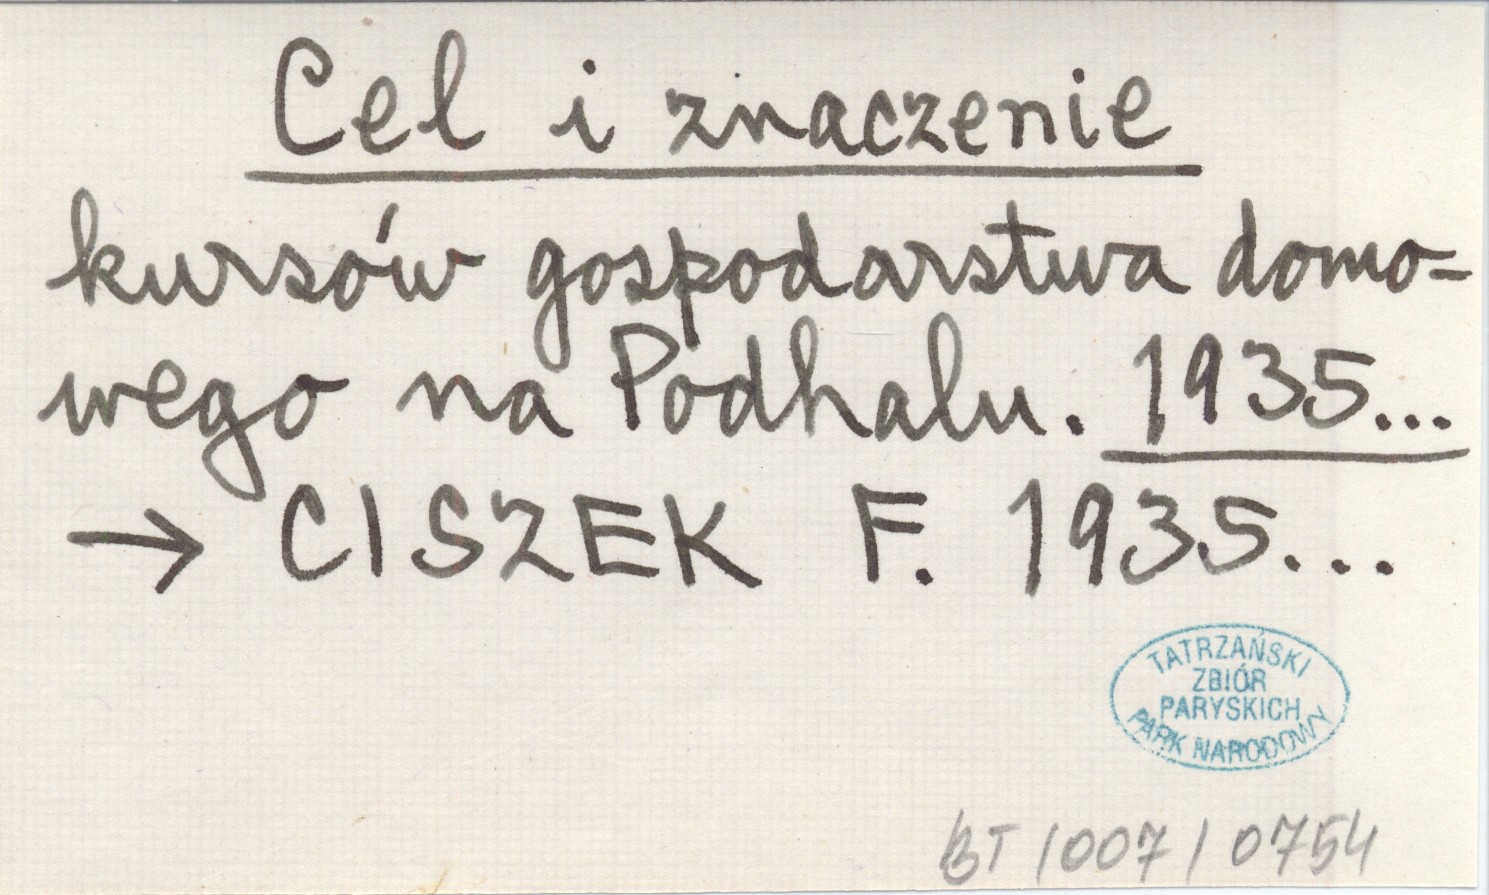 Cel i znaczenie
kursów gospodarstwa domo=
wego na Podhalu. 1935...
→ CISZEK F. 1935...
TATRZAŃSKI
ZBIÓR
PARYSKICH
PARK NARODOWY
BT/007/0754